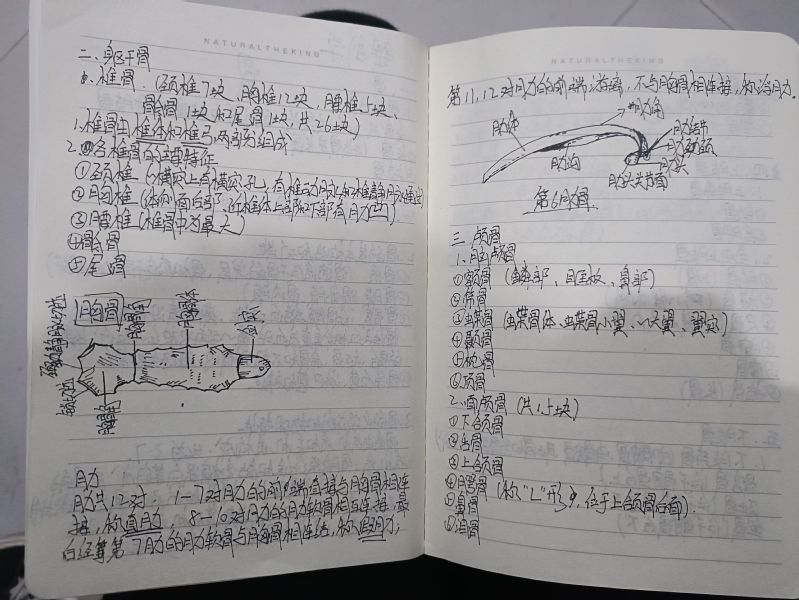 NATURALTHEKING
二、躯干骨
1. 椎骨（颈椎7块、胸椎12块、腰椎5块、
骶骨1块和尾骨1块，共26块）
1.椎骨由椎体和椎弓两部分组成
2.各椎骨的主要特征
①颈椎
②胸椎
③腰椎（椎骨中为最大）
④骶骨
⑤尾骨
胸骨
颈静脉切迹
锁切迹
胸骨柄
胸骨角
胸骨体
剑突
肋
肋共12对 1—7对肋的前端直接与胸骨相连
接，称真肋 8—10对肋的肋软骨相互连接，最
第7肋的肋软骨与胸骨相连结，称假肋；
NATURALTHEKING
第11,12对肋的前端游离，不与胸骨相连接，称浮肋.
肋体
肋角
肋沟
肋结节
肋颈
肋头
肋头关节面
第6肋骨
三、颅骨
1.脑颅骨
①额骨（眶部、鼻部）
②筛骨
③蝶骨（蝶骨体、蝶骨小翼、〃大翼、翼突）
④颞骨
⑤枕骨
⑥顶骨
2.面颅骨（共15块）
①下颌骨
③上颌骨
④腭骨（称“L”形，位于上颌骨后面）.
⑤鼻骨
⑥泪骨